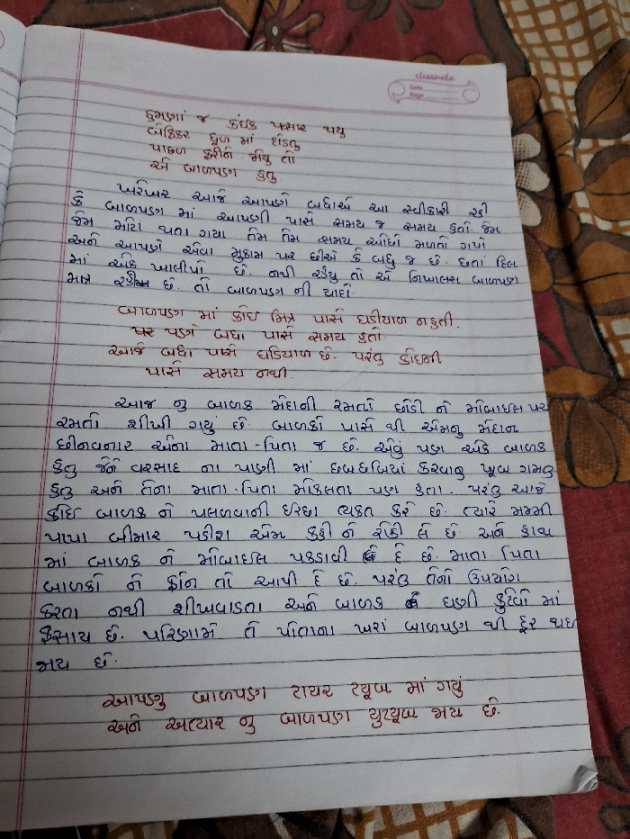 classmate
Date
Page
હમણાં જ કંઇક પસાર થયુ
બેફિકર ધૂળ માં દોડતુ
પાછળ ફરીને જોયુ તો
એ બાળપણ હતુ
ખરેખર આજે આપણે બધાએ આ સ્વીકારી રહી
કે બાળપણ માં આપણી પાસે સમય જ સમય હતો જેમ
જેમ મોટા થતા ગયા તેમ તેમ સમય ઓછો મળતો ગયો
અને આપણે એવા મુકામ પર છીએ કે બધુ જ છે. છતાં દિલ
માં એક ખાલીપો છે. નથી રહ્યુ તો એ નિખાલસ બાળપણ
માત્ર રહી છે. તો બાળપણ ની યાદો
બાળપણ માં કોઇ મિત્ર પાસે ઘડીયાળ નહતી.
પર પણ બધા પાસે સમય હતો
આજે બધા પાસે ઘડિયાળ છે. પરંતુ કોઇની
પાસે સમય નથી.
આજ નુ બાળક મેદાની રમતો છોડી ને મોબાઇલ પર
રમતા શીખી ગયુ છે બાળકો પાસે થી એમનુ મેદાન
છીનવનાર એના માતા-પિતા જ છે. એવું પણ એક બાળક
હતુ જેને વરસાદ ના પાણી માં છબછબિયાં કરવાનુ ખૂબ ગમતુ
હતુ અને તેના માતા-પિતા મોકલતા પણ હતા. પરંતુ આજે
કોઇ બાળક ને પલળવાની ઇચ્છા વ્યકત કરે છે. ત્યારે મમ્મી
પાપા બીમાર પડીશ એમ કહી ને રોકી લે છે અને હાથ
માં બાળક ને મોબાઇલ પકડાવી દે છે. માતા પિતા
બાળકો ને ફોન તો આપી દે છે. પરંતુ તેનો ઉપયોગ
કરતા નથી શીખવાડતા અને બાળક ઘણી કુટેવો માં
ફસાય છે. પરિણામે તે પોતાના ખરાં બાળપણ થી દૂર થઇ
જાય છે.
આપણુ બાળપણ ટાયર ટ્યૂબ માં ગયું
અને અત્યાર નુ બાળપણ યુટ્યૂબ જાય છે.